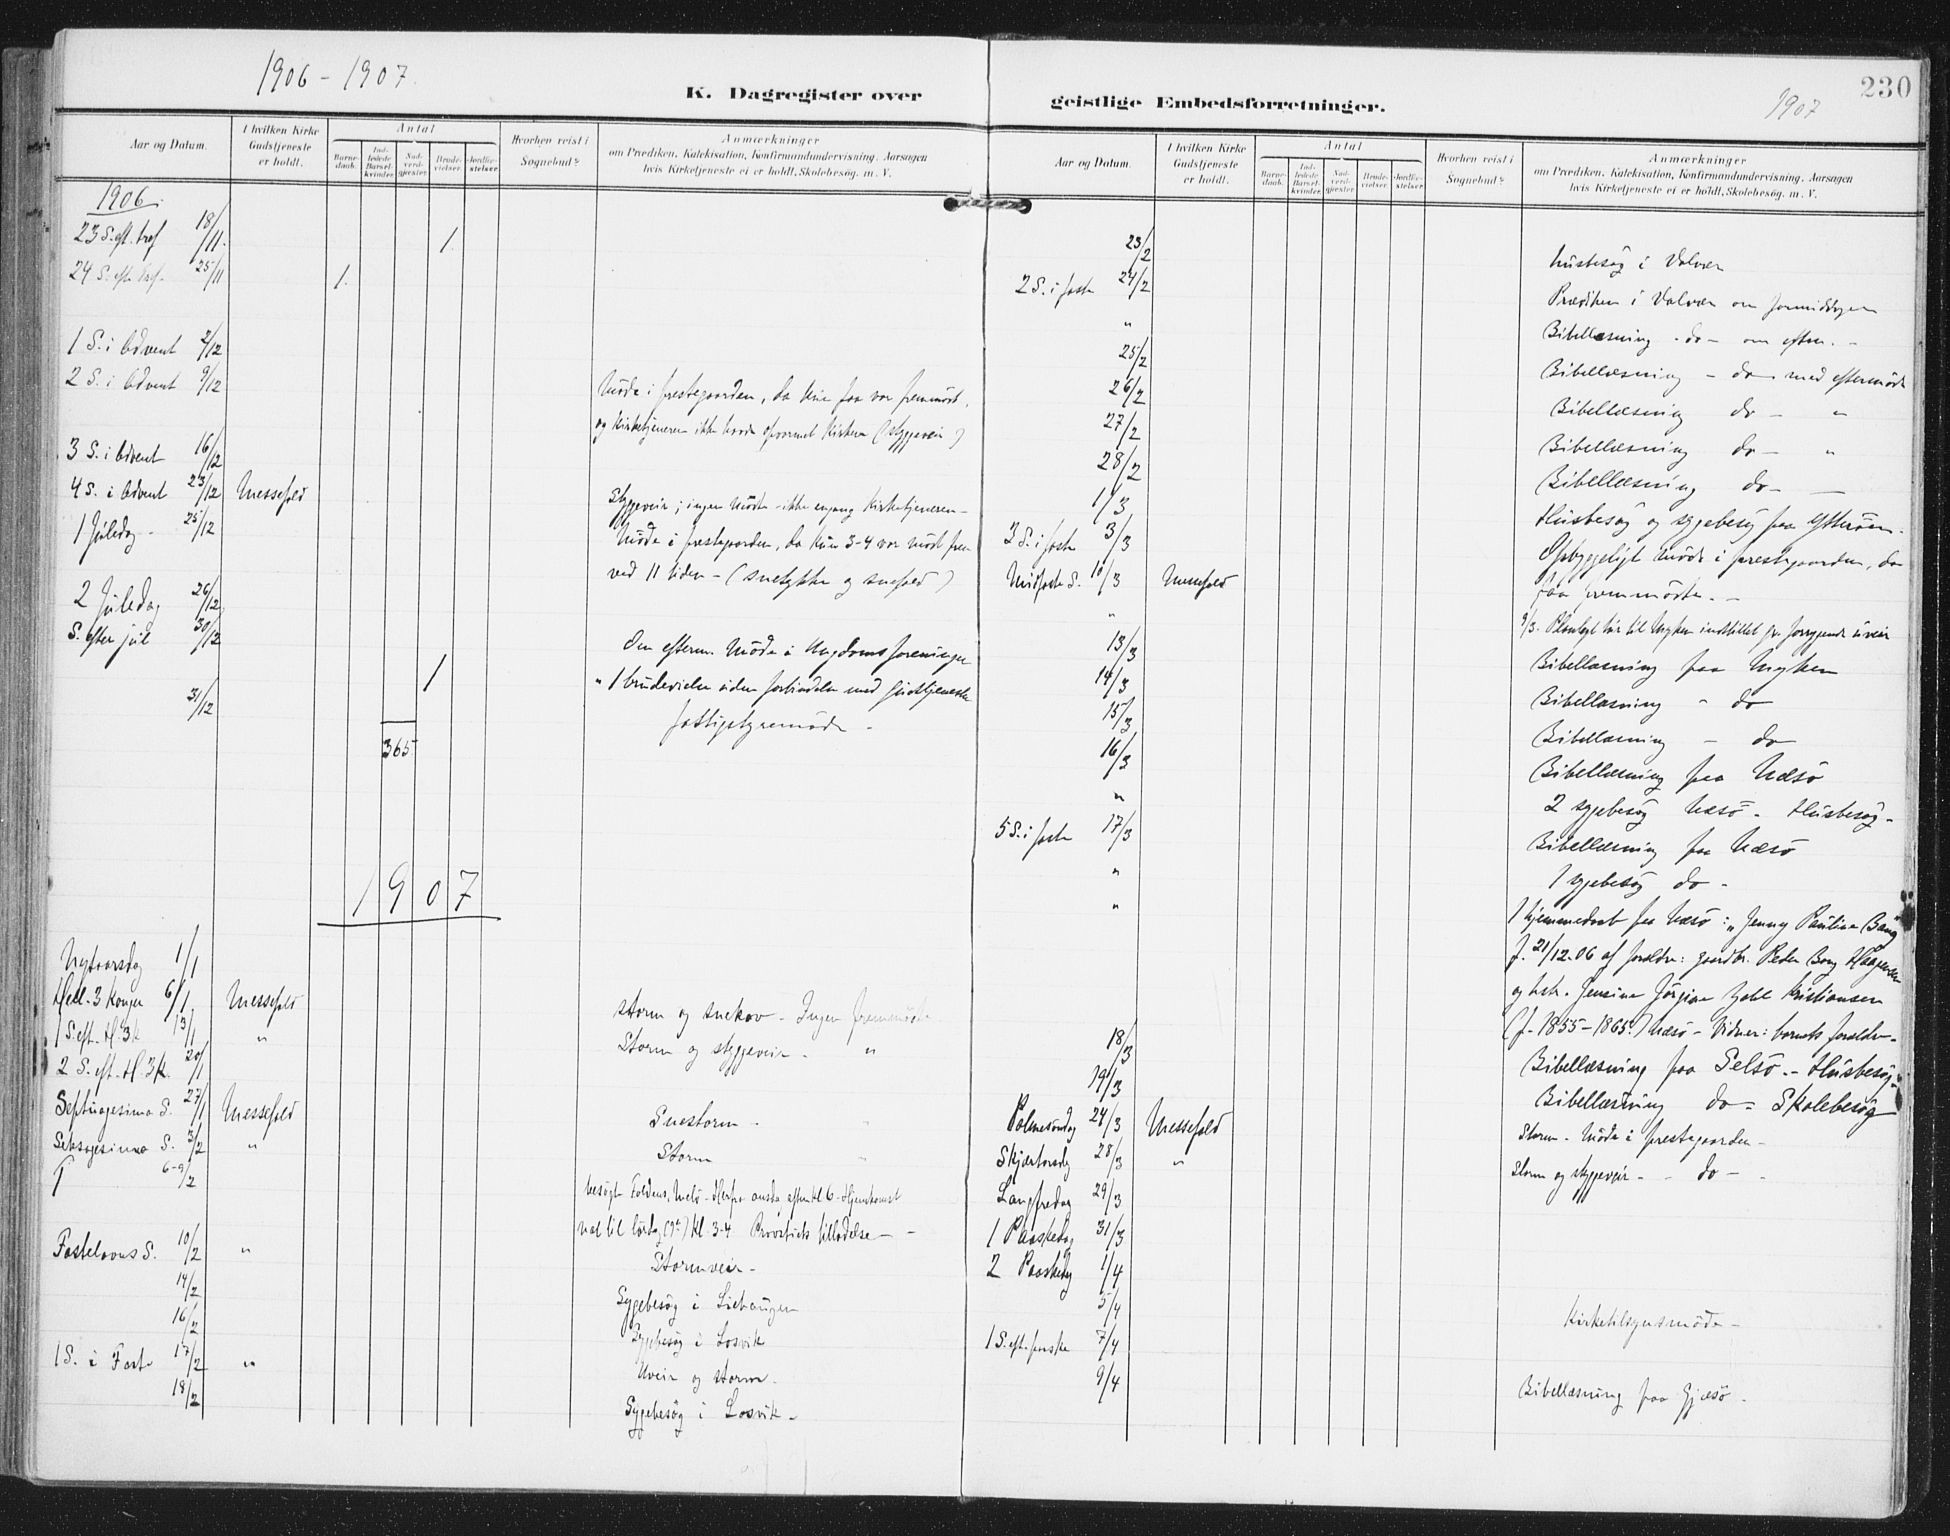 1906 - 1907.
K. Dagregister over
Aar og Datum.
I hvilken Kirke Gudstjeneste er holdt.
Antal
Barnedaab.
Indledede Barselkvinder.
Nadverdgjester.
Brudevielser.
Jordfæstelser.
Hvorhen reist i Sognebud?
Anmærkninger
om Prædiken, Katekisation, Konfirmandundervisning, Aarsagen
hvis Kirketjeneste ei er holdt, Skolebesøg, m. V.
1906.
23 S. eft. tref 18/11. 1.
24 S. eft. tref. 25/11 1.
1 S. i Advent 2/12
2 S. i Advent 9/12
Møde i prestegaarden, da kun faa var fremmødt,
og Kirketjeneren ikke havde opvarmet Kirken (styggeveir)
3 S. i Advent 16/12
4 S. i Advent 23/12 Messefald
Styggeveir; ingen mødte - ikke engang Kirketjeneren -
1 Juledag - 25/12
Møde i prestegaarden, da kun 3-4 var mødt frem
ved 11 tiden - (snetykke og snefald)
2 Juledag 26/12
S. efter jul 30/12
Om efterm. møde i Ungdomsforeningen
1 " 1 brudevielse uden forbindelse med gudstjeneste
31/12 fattigstyremøde -
365
1907
Nytaarsdag 1/1
Hell. 3 Konger 6/1 Messefald storm og snekov - Ingen fremmødte
1 S. eft. H. 3 K. 13/1 " Storm og styggeveir - "
2 S. eft. H. 3 K. 20/1
Septuagesima S. 27/1 Messefald Snestorm - "
Seksagesima S. 3/2 " Storm "
6-9/2 besøgt Foldens, Melø - Herfra onsdag efterm kl 6 - Hjemkomst
nat til lørdag (9de) kl. 3-4 Provstiets tilladelse -
Fastelavns S. 10/2 " Stormveir -
14/2 Sygebesøg i
16/2 Sygebesøg i Losvik
1 S. i Faste 17/2 " Uveir og storm.
18/2 Sygebesøg i Losvik -
geistlige Embedsforretninger.
1907
230
Aar og Datum.
I hvilken Kirke Gudstjeneste er holdt.
Antal
Barnedaab.
Indledede Barselkvinder.
Nadverdgjester.
Brudevielser.
Jordfæstelser.
Hvorhen reist i Sognebud?
Anmærkninger
om Prædiken, Katekisation, Konfirmandundervisning, Aarsagen
hvis Kirketjeneste ei er holdt, Skolebesøg, m. V.
23/2 Husbesøg i Valvær
2 S. i faste 24/2 Prædiken i Valvær om formiddagen
" Bibellæsning - do - om efterm. -
25/2 Bibellæsning - do - med eftermøde
26/2 Bibellæsning do - "
27/2 Bibellæsning do - "
28/2 Bibellæsning do -
1/3 Husbesøg og sygebesøg paa Ytterøen -
3 S. i faste 3/3 Opbyggeligt møde i prestegaarden, da
faa fremmødte. -
Midfaste S. 10/3 Messefald 9/3. Planlagt tur til Myken indstillet gr. forrygende uveir
" Bibellæsning paa Myken
13/3 Bibellæsning - do
14/3 Bibellæsning - do
15/3 Bibellæsning paa Næsø
16/3 2 sygebesøg Næsø - Husbesøg -
" Bibellæsning paa Næsø
5 S. i faste 17/3 1 sygebesøg do -
"
" 1 hjemmedøbt paa Næsø: "Jenny Pauline Bang"
f. 21/12.06 af foreldre: gaardbr. Peder Bang Haagensen
og hstr. Jensine Jørgine Kristiansen
(f. 1855-1865.) Næsø - Vidner: barnets foreldre -
18/3 Bibellæsning paa Selsø - Husbesøg -
19/3 Bibellæsning do - Skolebesøg
Palmesøndag 24/3 Messefald Storm - Møde i prestegaarden -
Skjærtorsdag 28/3 " Storm og styggeveir - - do -
Langfredag 29/3
1 Paaskedag 31/3
2 Paaskedag 1/4
5/4 Kirketilsynsmøde -
1 S. eft. paaske 7/4
9/4 Bibellæsning paa Gjæsø -